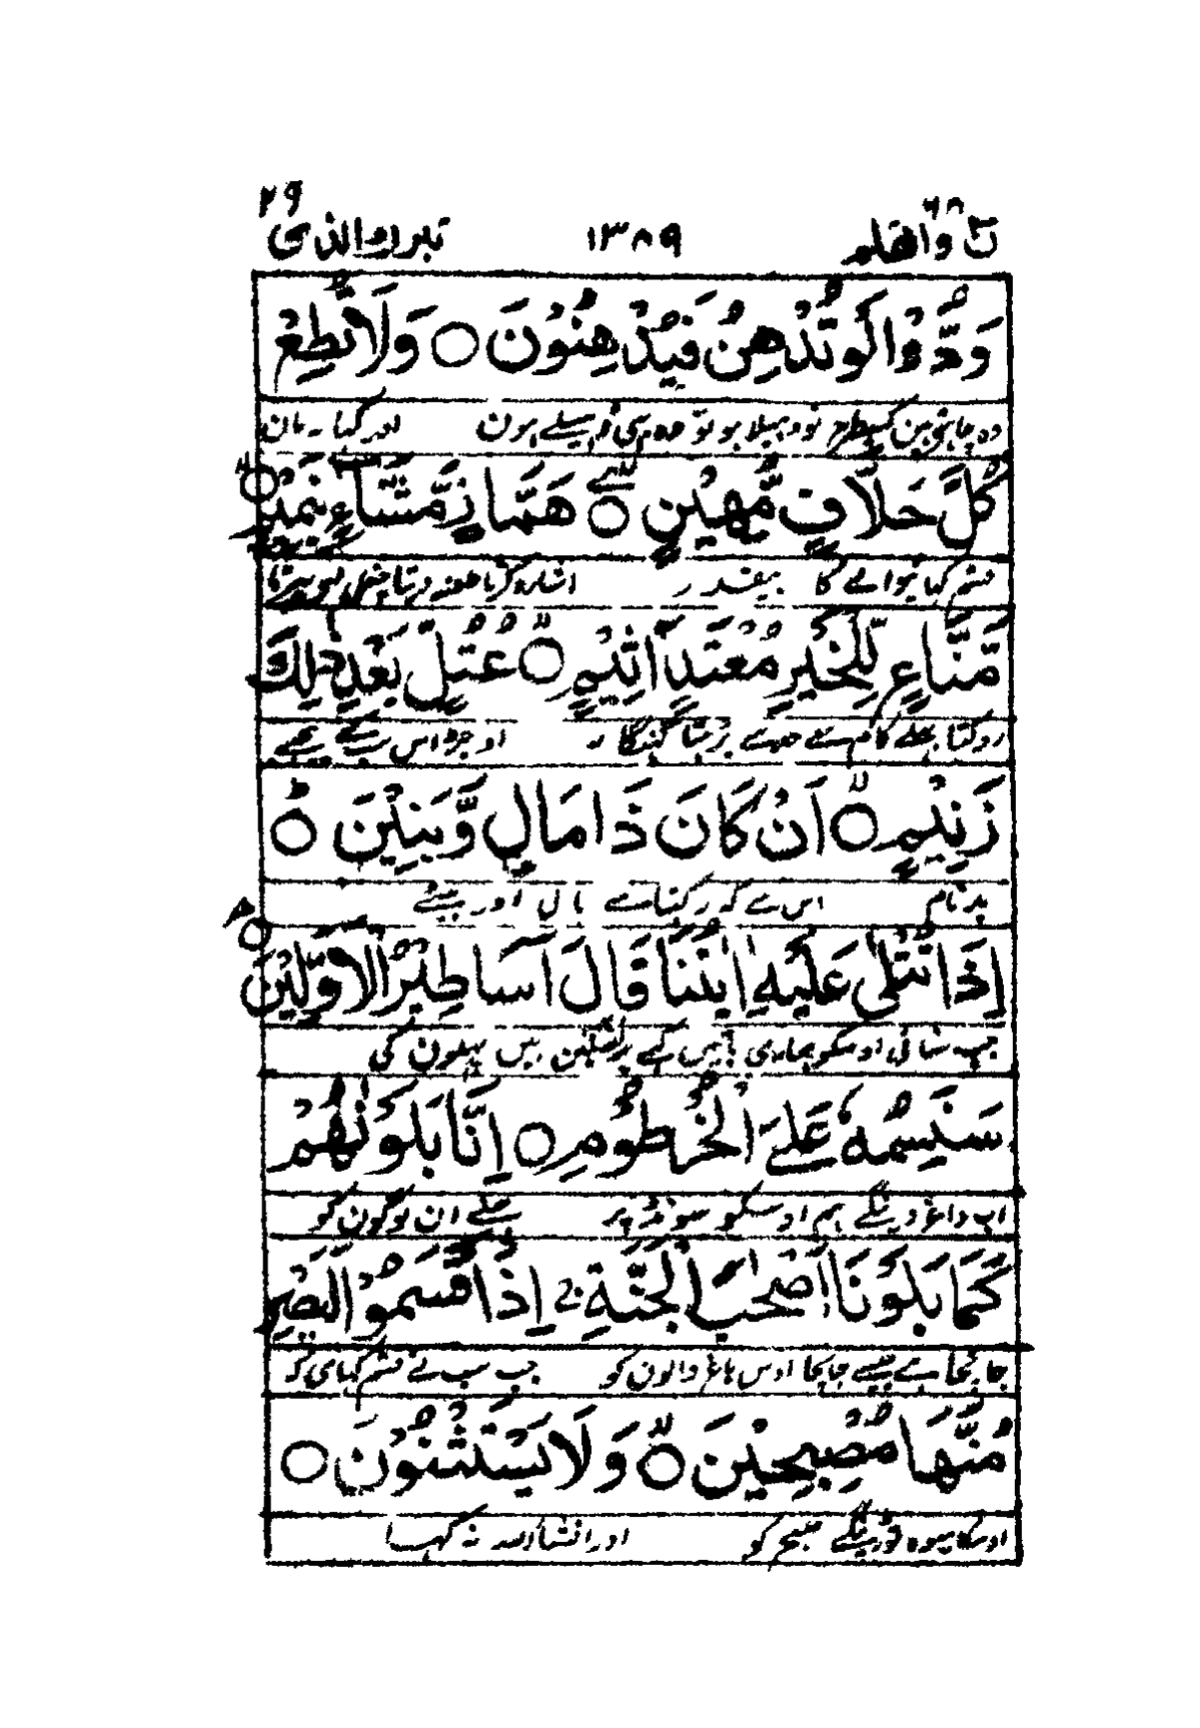 ۲۹
۶۸
ن والقلم ۱۳۸۹ تبرك الذى
وَدُّوْا لَوْ تُدْهِنُ فَيُدْهِنُوْنَ ○ وَلَا تُطِعْ
وہ چاہتے ہین کسیطرح تو ڈھیلا ہو تو وہ بھی ڈھیلے ہون اور کہا نہ مان
كُلَّ حَلَّافٍ مَّهِيْنٍ ○ هَمَّازٍ مَّشَّآءٍۭ بِنَمِيْمٍ ○
قسم کہانیوالے کا بیقدر اشارہ کرتا طعنہ دیتا چغلی لیے پھرتا
مَّنَّاعٍ لِّلْخَيْرِ مُعْتَدٍ اَثِيْمٍ ○ عُتُلٍّۭ بَعْدَ ذٰلِكَ
روکتا بھلے کام سے حد سے بڑہتا گنہگار اوجڈ اس سب کے پیچھے
زَنِيْمٍ ○ اَنْ كَانَ ذَا مَالٍ وَّبَنِيْنَ ○
بدنام اس سے کہ رکہتا ہے مال اور بیٹے
اِذَا تُتْلٰى عَلَيْهِ اٰيٰتُنَا قَالَ اَسَاطِيْرُ الْاَوَّلِيْنَ ○
جب سنائی اوسکو ہماری باتین کہے یہ نقلین ہیں پہلون کی
سَنَسِمُهٗ عَلَى الْخُرْطُوْمِ ○ اِنَّا بَلَوْنٰهُمْ
اب داغ دینگے ہم اوسکو سونڈ پر ان لوگون کو
كَمَا بَلَوْنَا اَصْحٰبَ الْجَنَّةِ ج اِذْ اَقْسَمُوْا لَيَصْرِ
جانچا ہے جیسے جانچا اوس باغ والون کو جب سب نے قسم کہای کہ
مُنَّهَا مُصْبِحِيْنَ ○ وَلَا يَسْتَثْنُوْنَ ○
اوسکا میوہ توڑینگے صبح کو اور انشاءاللہ نہ کہا